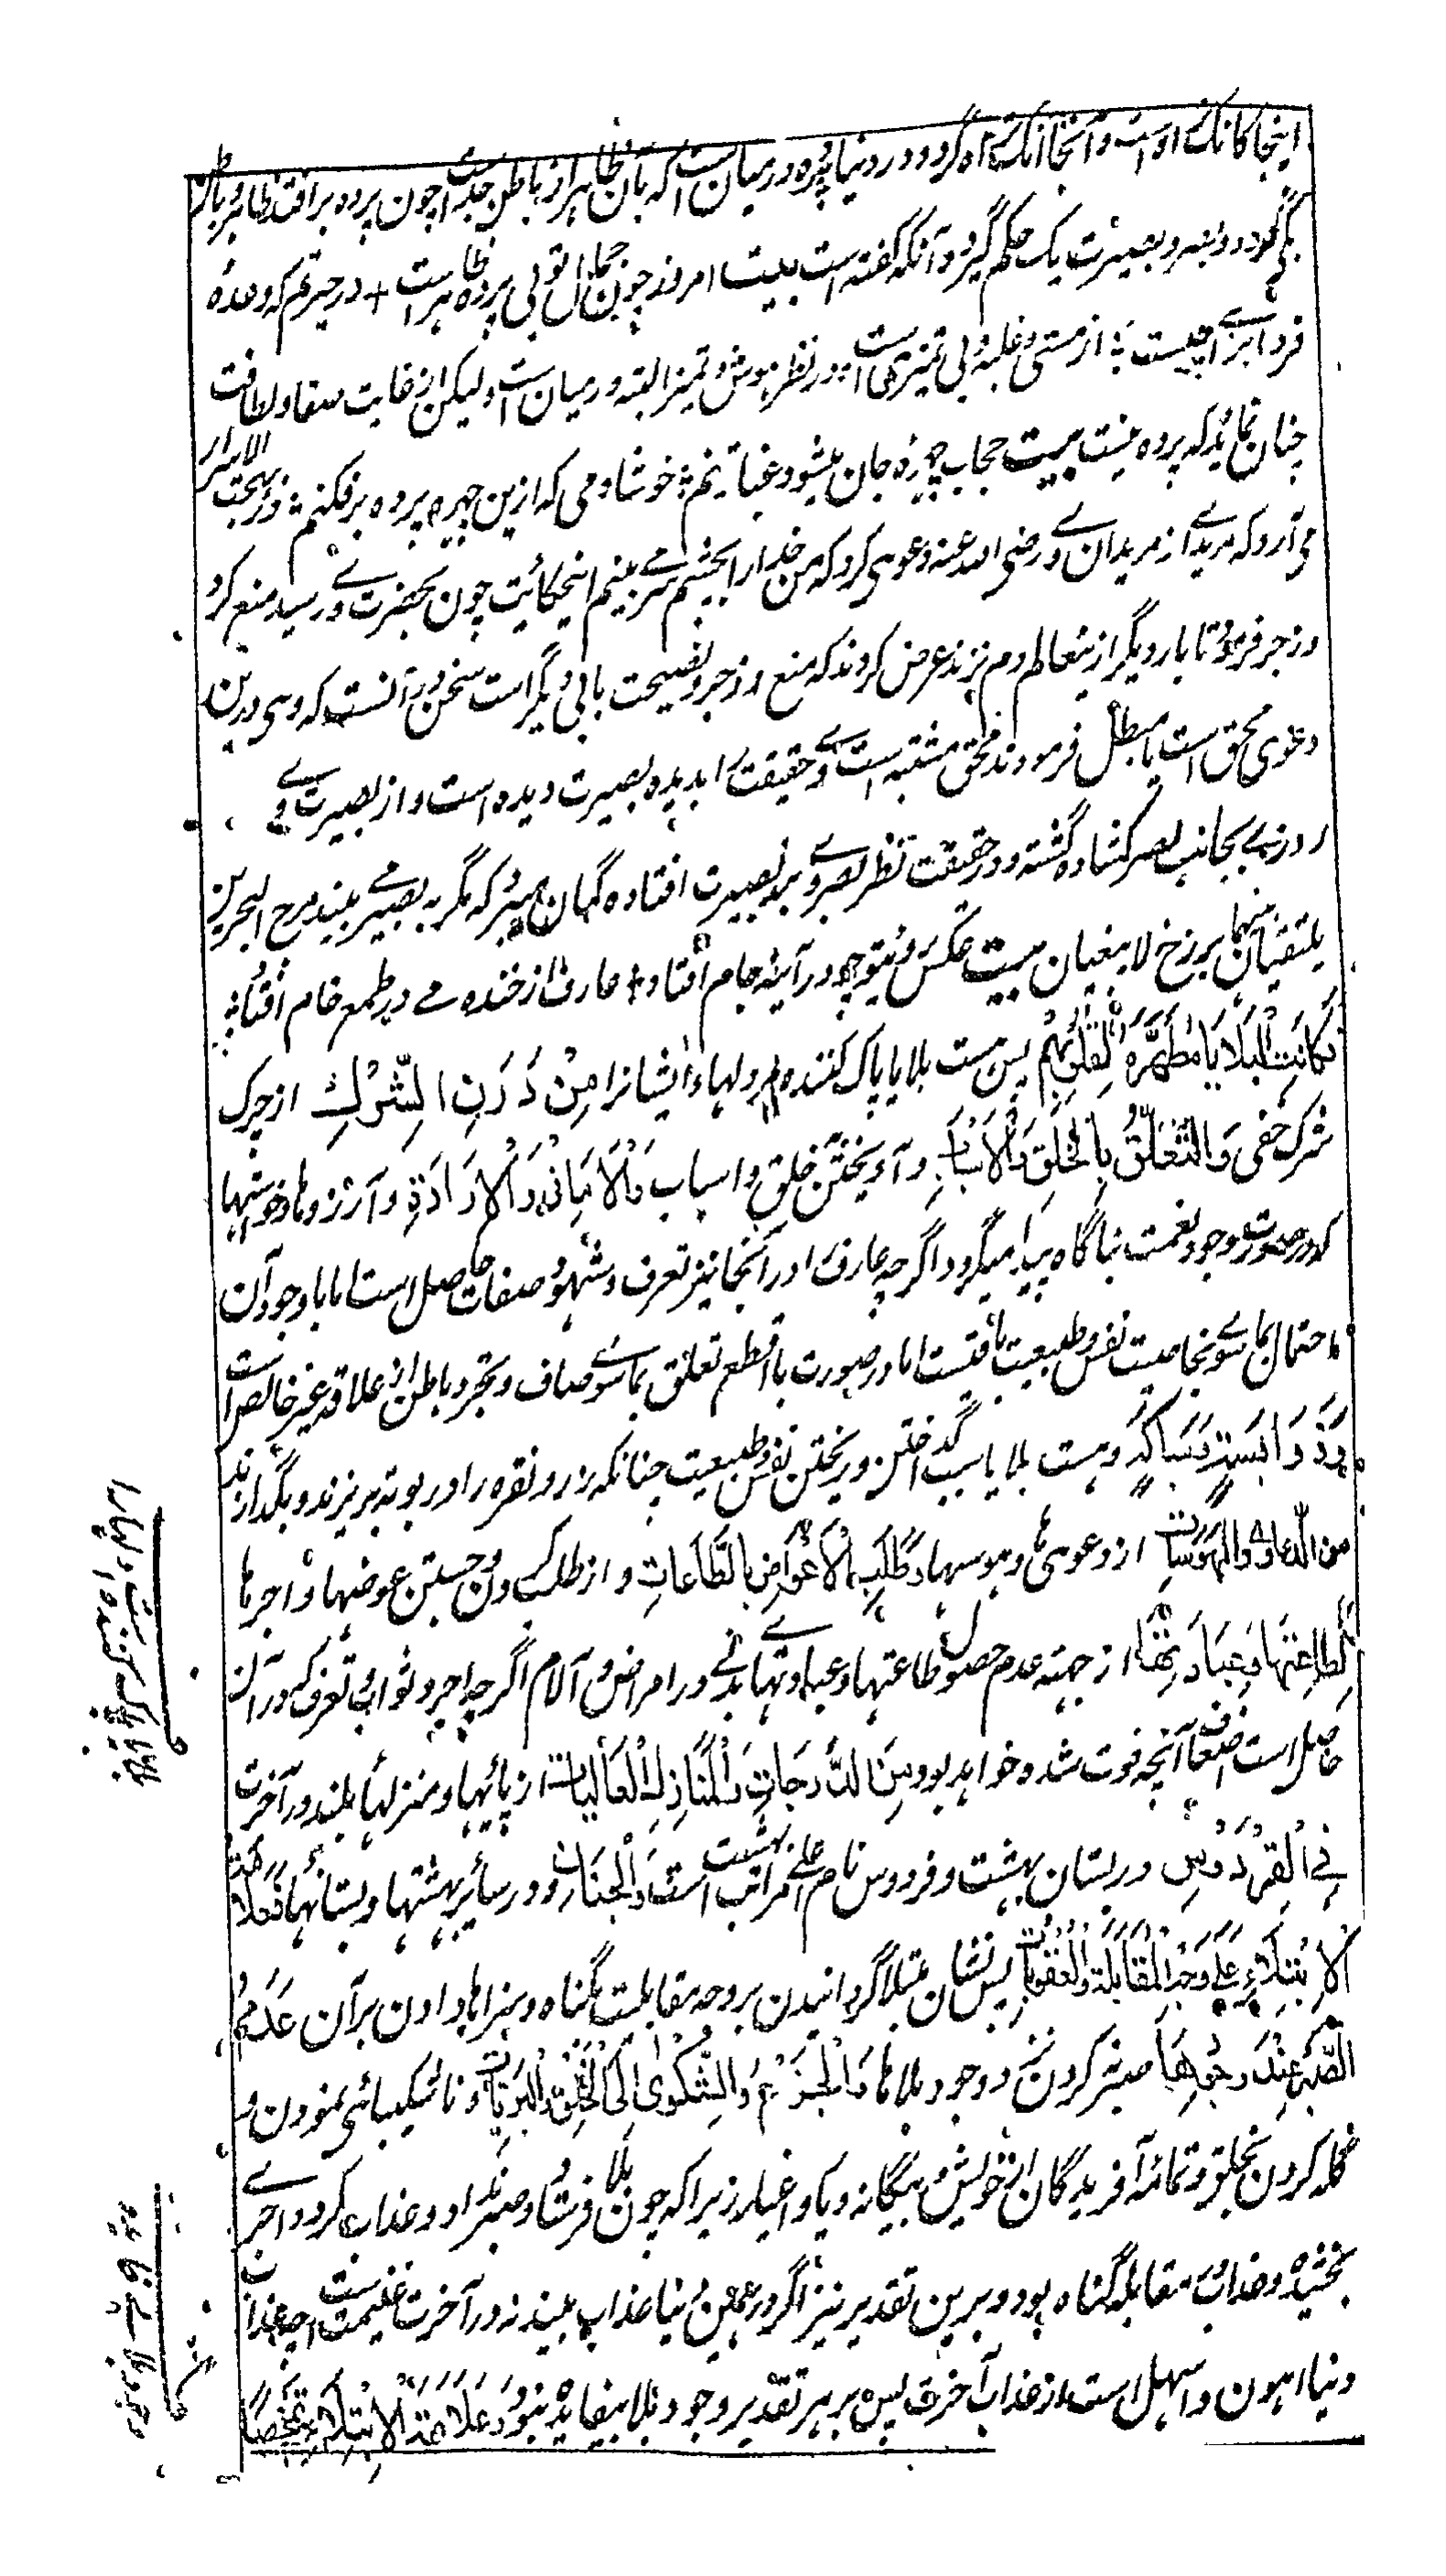 اینجا کانک اوست و آنجا انک تراه گردد و در دنیا پرده در میان است که بآن ظاهر از باطن جداست چون پرده بر افتد ظاهر و باطن
یکی گردد و بصر و بصیرت یک حکم گیرد و آنکه گفته است بیت امروز چون جمال تو بی پرده ظاهر است + در حیرتم که وعدهٔ
فردا برای چیست ؛ از مستی و غلبه و بی تمیزی است و در نظر هوش و تمیز البته در میان است ولیکن از غایت صفا و لطافت
چنان نماید که پرده نیست بیت حجاب چهرهٔ جان میشود غبار تنم ؛ خوشا دمی که ازین چهره پرده بر فکنم ؛ و در بهجت الاسرار
می آرد که مریدے از مریدان وے رضی الله عنه دعوی کرد که من خدا را بچشم سر می بینم این حکایت چون بحضرت وے رسید منع کرد
و زجر فرمود تا بار دیگر ازین عالم دم نزند عرض کردند که منع و زجر و نصیحت بابی دیگر است سخن در آنست که وی درین
دعوی محق است یا مبطل فرمودند محق مشتبه است وے حقیقت را بدیده بصیرت دیده است و از بصیرت وے
روزنے بجانب بصر کشاده گشته و در حقیقت نظر بصر وے بر بصیرت افتاده گمان میبرد که مگر به بصر می بیند مرج البحرین
یلتقیان بینهما برزخ لا یبغیان بیت عکس روے تو چو در آینهٔ جام افتاد + عارف از خنده می در طمع خام افتاد ؛
فَكَانَتِ الْبَلَايَا مُطَهِّرَةً لِقُلُوبِهِمْ پس هست بلایا پاک کننده مر دلهاء ایشانرا مِنْ دَرَنِ الشِّرْكِ از چرک
شرک خفی وَالتَّعَلُّقِ بِالْخَلْقِ وَالْأَسْبَابِ و آویختن بخلق و اسباب وَالْأَمَانِي وَالْإِرَادَةِ و آرزوها و خواستها
که در صورت وجود نعمت بناگاه پیدا میگردد اگرچه عارف را در آنجا نیز تعرف و شهود صفات حاصل است اما با وجود آن
احتمال بماسوے بخاصیت نفس و طبیعت باقیست اما در صورت بلا قطع تعلق بماسوے صاف و تجرد باطن از علاقه غیر خالص است
وَ سَبَّاكَةً و هست بلایا سبب گداختن و ریختن نفس و طبیعت چنانکه زر و نقره را در بوته بریزند و بگدازند
من الدعاوی والهوسات از دعوی ها و هوسها وَطَلَبِ الْأَعْوَاضِ بِالطَّاعَاتِ و از طلب کردن و جستن عوضها و اجرها
لِطَاعَتِهَا وَعِبَادَتِهَا از جهة عدم حصول طاعتها و عبادتهاے بدنی در امراض و آلام اگرچه اجر و ثواب و تعرف که در آن
حاصل است اضعاف آنچه فوت شده خواهد بود مِنَ الدَّرَجَاتِ وَالْمَنَازِلِ الْعَالِيَاتِ از پائیها و منزلهاء بلند در آخرت
فِي الْفِرْدَوْسِ در بستان بهشت و فردوس نام اعلے مراتب بهشت است وَالْجِنَانِ و در سائر بهشتها و بستانها فَعَلَامَةُ
الْاِبْتِلَاءِ عَلَى وَجْهِ الْمُقَابَلَةِ وَالْعُقُوبَاتِ پس نشان مبتلا گردانیدن بر وجه مقابلت بگناه و سزاها دادن بر آن عَدَمُ
الصَّبْرِ عِنْدَ وُجُودِهَا صبر کردن نزد وجود بلاها وَالْجَزَعُ وَالشَّكْوَى إِلَى الْخَلْقِ وَالْبَرِيَّاتِ و ناشکیبائی نمودن و
گله کردن بخلق و تمامه آفریدگان از خویش و بیگانه و یار و اغیار زیرا که چون بلا فرستاد و صبر نداد و عذاب کرد و اجر نے
بخشیده و عذاب مقابله گناه بود و برین تقدیر نیز اگر در همین دنیا عذاب بیند نه در آخرت غنیمت است چه عذاب
دنیا اهون و اسهل است از عذاب آخرت پس بر هر تقدیر وجود بلا بیفایده نبود وَعَلَامَةُ الْاِبْتِلَاءِ تَمْحِيصًا